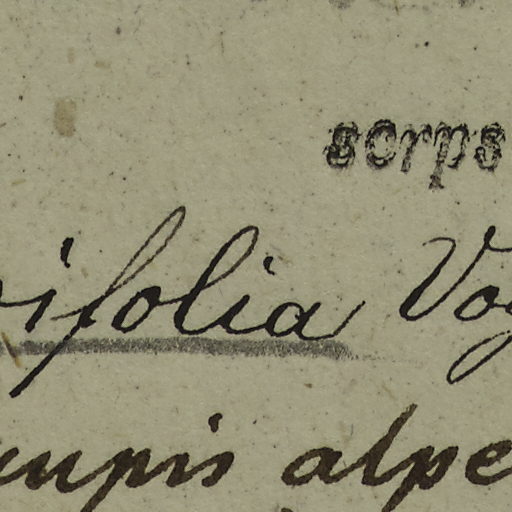 scrps
ifolia Vog
rupis alpe